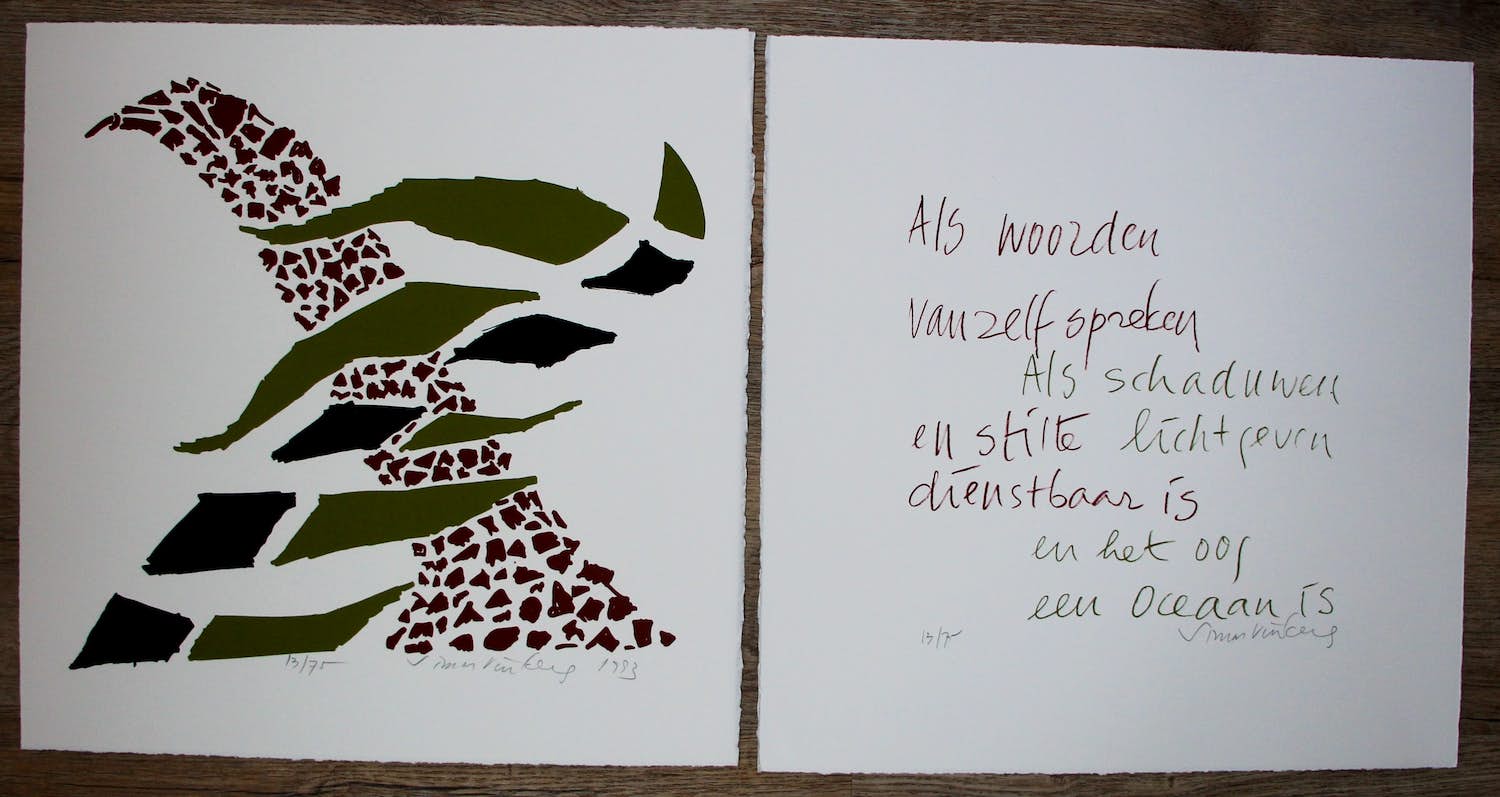 13/75 1993
Als woorden
vanzelfspreken
Als schaduwen
en stilte lichtgeven
dienstbaar is
en het oog
een oceaan is
13/75 Simon Vinkenoog